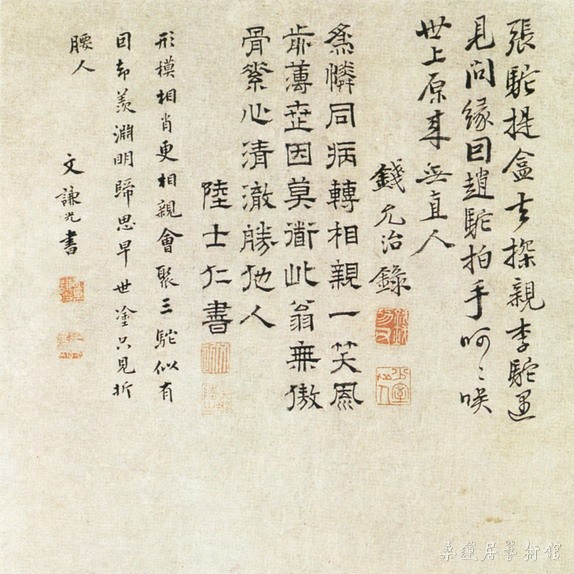 張駝提盒去探親李駝遇
見問緣囙趙駝拍手呵〻咲
世上原來無直人
錢允治錄
為憐同病轉相親一笑風
歬薄世因莫衟此翁無傲
骨縏心清澈勝他人
陸士仁書
形模相肖更相親會聚三駝似有
囙却羨淵明歸思早世塗只見折
腰人
文謙光書
桑蓮居藝術館